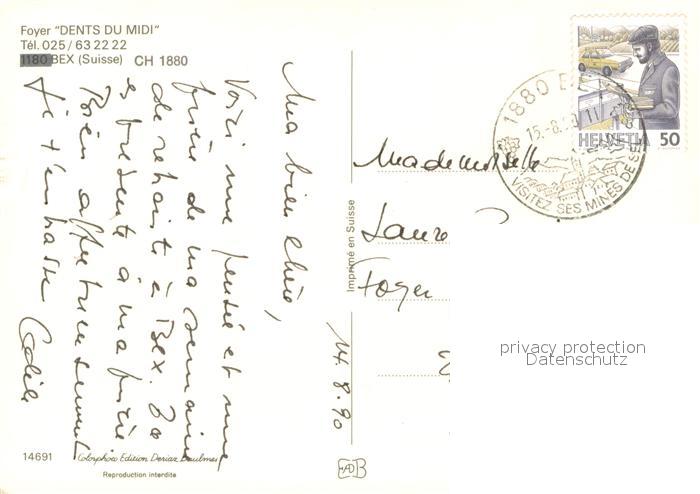 Foyer "DENTS DU MIDI"
Tél. 025/63 22 22
1180 BEX (Suisse) CH 1880
Ma bien chère,
Voici une pensée et une
prière de ma semaine
de retraite à Bex. Je
te présente à ma prière
Bien affectueusement
Je t'embrasse
Odile
14.8.90
Imprimé en Suisse
1880 BEX
15.-8.90-11
VISITEZ SES MINES DE SEL
HELVETIA 50
Mademoiselle
Laure
Foyer
privacy protection
Datenschutz
14691
Colorphoto Edition Deriaz Baulmes
Reproduction interdite